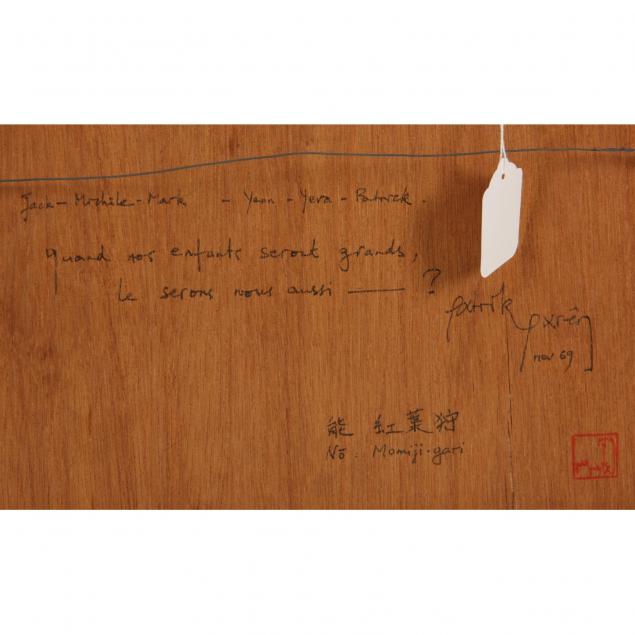 Jack - Michèle - Mark - Yann - Yera - Patrick.
Quand nos enfants seront grands,
le serons nous aussi — ?
nov 69
能 紅葉狩
Nō. Momiji-gari